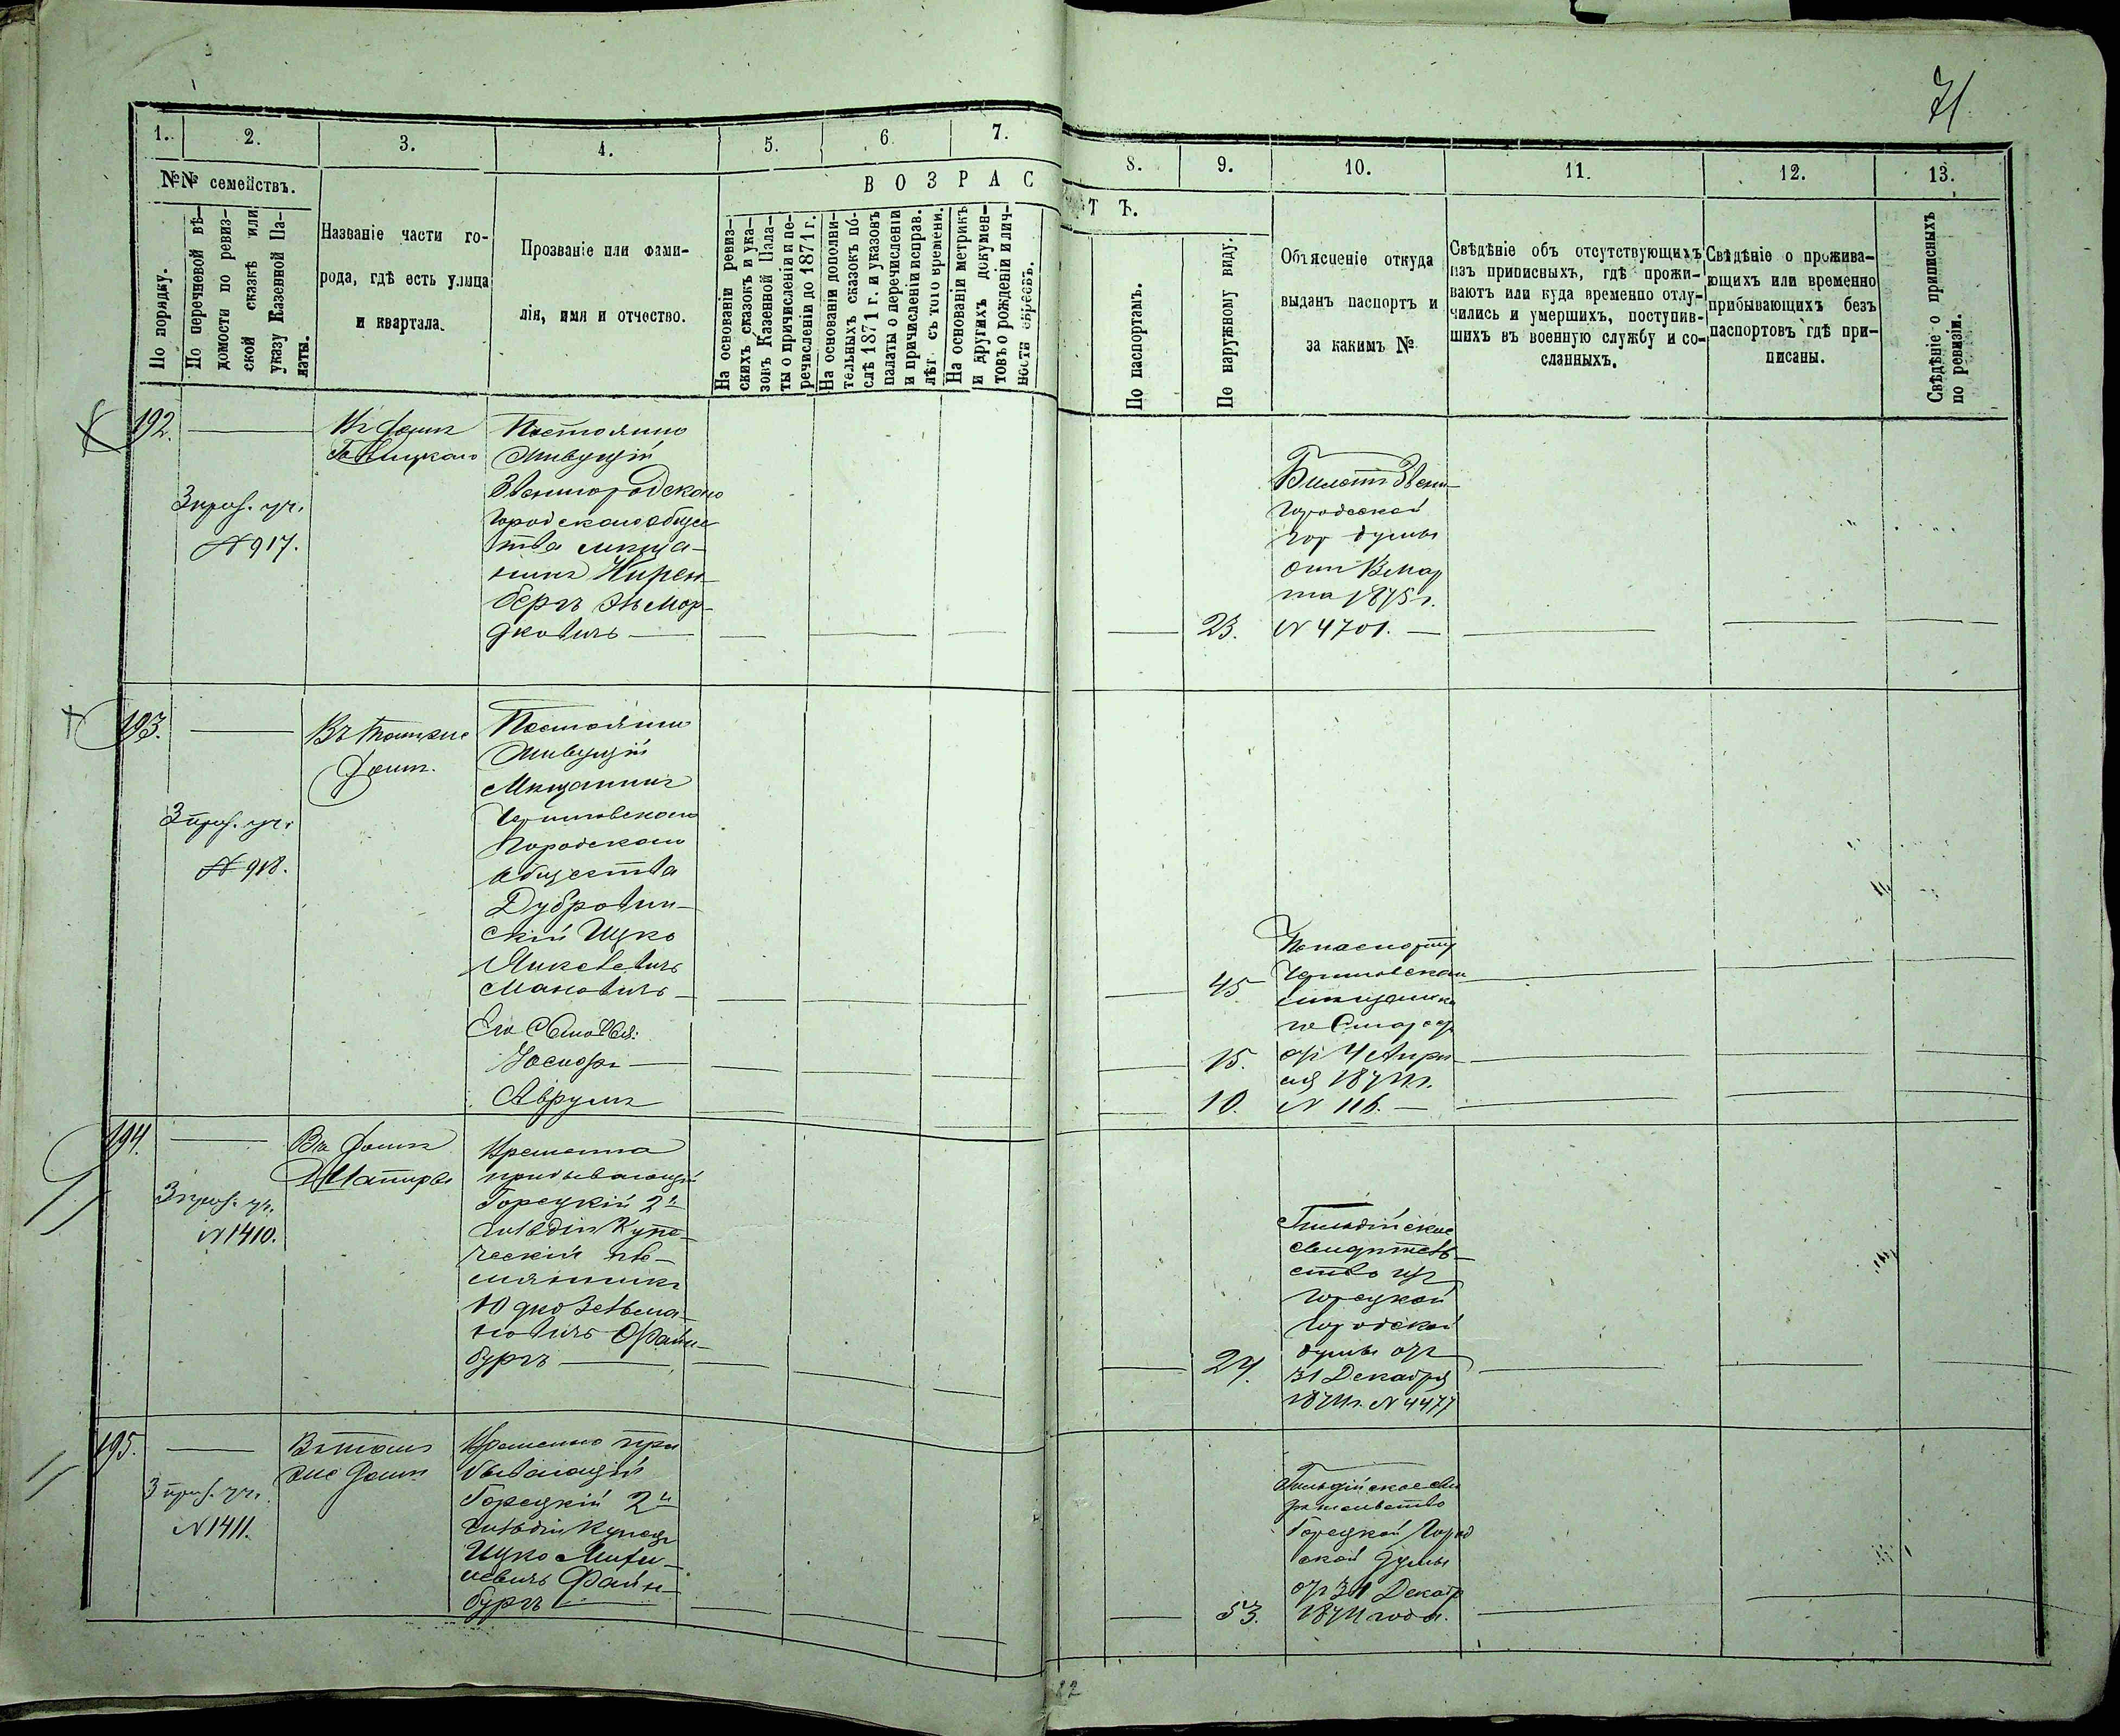 71
1.
2.
3.
4.
5.
6
7.
8.
9.
10.
11.
12.
13.
№№ семействъ.
В О З Р А С
Т Ъ.
По порядку.
По перечневой вѣ-
домости по ревиз-
ской сказкѣ или
указу Казенной Па-
латы.
Названіе части го-
рода, гдѣ есть улица
и квартала.
Прозваніе или фами-
лія, имя и отчество.
На основаніи ревиз-
скихъ сказокъ и ука-
зовъ Казенной Пала-
ты о причисленіи и пе-
речисленіи до 1871 г.
На основаніи дополни-
тельныхъ сказокъ по-
слѣ 1871 г. и указовъ
палаты о перечисленіи
и причисленіи исправ.
лѣт. съ того времени.
На основаніи метрикъ
и другихъ докумен-
товъ о рожденіи и лич-
ности евреевъ.
По паспортамъ.
По наружному виду.
Объясненіе откуда
выданъ паспортъ и
за какимъ №
Свѣдѣніе объ отсутствующихъ
изъ приписныхъ, гдѣ прожи-
ваютъ или куда временно отлу-
чились и умершихъ, поступив-
шихъ въ военную службу и со-
сланныхъ.
Свѣдѣніе о прожива-
ющихъ или временно
прибывающихъ безъ
паспортовъ гдѣ при-
писаны.
Свѣдѣніе о приписныхъ
по ревизіи.
192.
3 приз. уч.
№ 917.
Въ домѣ
Постоянно
живущій
Звенигородскаго
городскаго общес
тва мѣща-
нинъ Кирен-
бергъ
Мор-
дковичъ
23.
Билетъ Звени-
городской
гор думы
отъ
Мар
та 1875 г.
№ 4701.
193.
3 приз. уч.
№ 918.
Въ томже
домѣ.
Постоянно
живущій
Мѣщанинъ
Черниговскаго
Городскаго
общества
Дубровин-
скій Ицко
Янкелевичъ
Мановичъ
Его сыновья:
Іосифъ
Аврумъ
45
15.
10.
По паспорту
Черниговскаго
отъ 4 Апрѣ
ля 1874 г.
№ 116.
194.
3 приз. уч.
№ 1410.
Въ домѣ
Шапиры
Временно
прибывающій
Горецкій 2й
гильдіи Купе-
ческій пле-
мянникъ
Юдко Зельма-
новичъ Файн-
бургъ
24.
Гильдійское
свидѣтель
ство изъ
Горецкой
городской
думы отъ
31 Декабря
1874 г. № 4477
195.
3 приз. уч.
№ 1411.
Въ томъ
же домѣ
Временно при
бывающій
Горецкій 2й
гильдіи Купецъ
Ицко
Файн-
бургъ
53.
Гильдійское сви
дѣтельство
Горецкой Город
ской Думы
отъ 31 Декабр
1874 года.
22